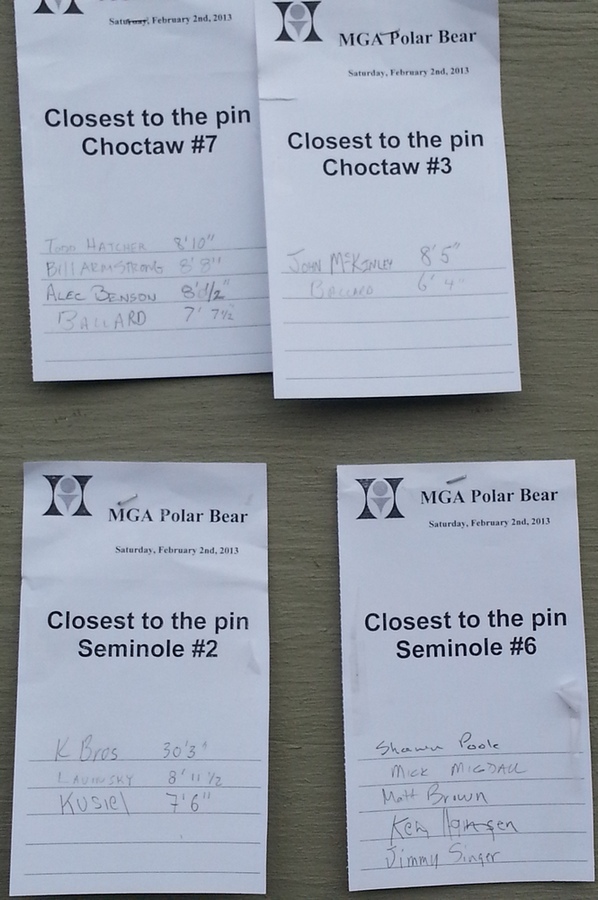 Saturday, February 2nd, 2013
Closest to the pin
Choctaw #7
Todd HATCHER 8'10"
Bill ARMSTRONG 8'8"
ALEC BENSON 8'1/2"
BALLARD 7' 7½"
MGA Polar Bear
Saturday, February 2nd, 2013
Closest to the pin
Choctaw #3
JOHN McKINLEY 8'5"
BALLARD 6' 4"
MGA Polar Bear
Saturday, February 2nd, 2013
Closest to the pin
Seminole #2
K Bros 30'3"
LAVINSKY 8'11½
KUSIEL 7'6"
MGA Polar Bear
Saturday, February 2nd, 2013
Closest to the pin
Seminole #6
Shawn Poole
MICK MIGDALL
Matt Brown
Ken
Jimmy Singer